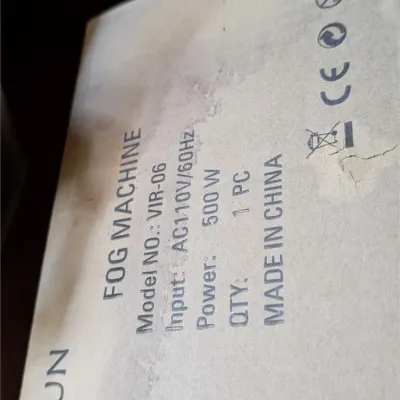 FOG MACHINE
Model NO.: VIR-06
Input: AC110V/60Hz
Power: 500 W
QTY: 1 PC
MADE IN CHINA
CE
UN